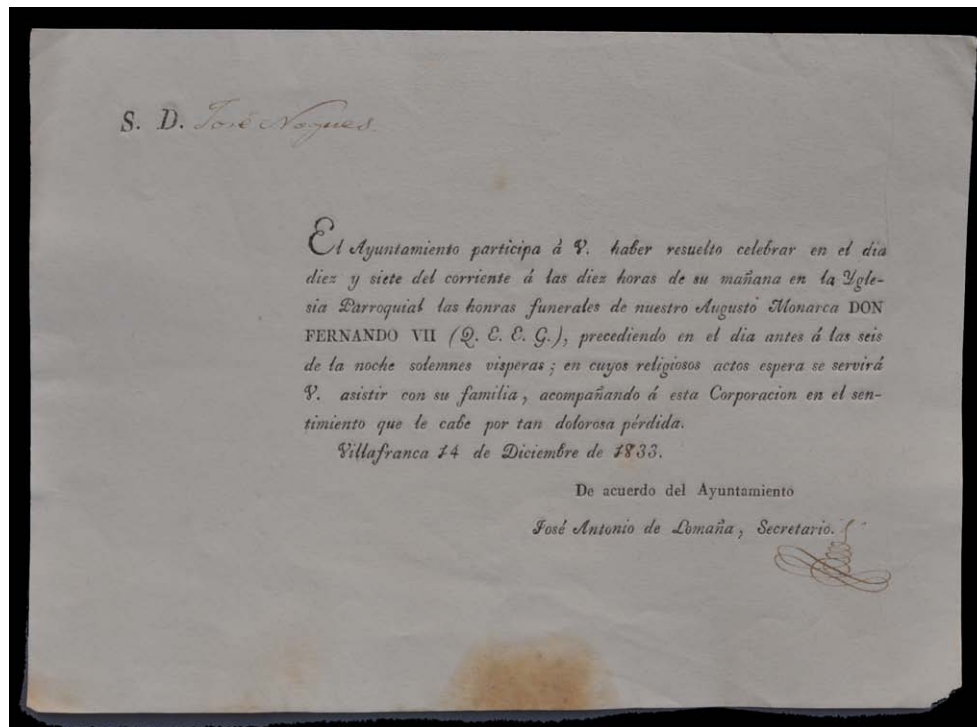 S. D. José Nogues.
El Ayuntamiento participa á V. haber resuelto celebrar en el dia
diez y siete del corriente á las diez horas de su mañana en la Ygle-
sia Parroquial las honras funerales de nuestro Augusto Monarca DON
FERNANDO VII (Q. E. E. G.), precediendo en el dia antes á las seis
de la noche solemnes visperas; en cuyos religiosos actos espera se servirá
V. asistir con su familia, acompañando á esta Corporacion en el sen-
timiento que le cabe por tan dolorosa pérdida.
Villafranca 14 de Diciembre de 1833.
De acuerdo del Ayuntamiento
José Antonio de Lomaña, Secretario.